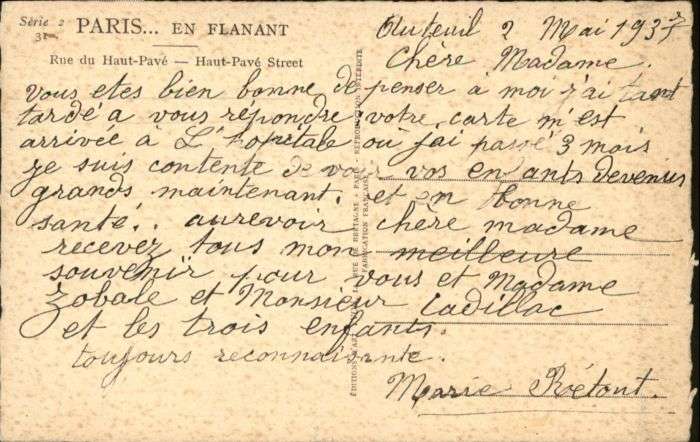 Série 2
31
PARIS... EN FLANANT
Rue du Haut-Pavé — Haut-Pavé Street
Auteuil 2 Mai 1937
Chère Madame.
vous etes bien bonne de penser à moi j'ai tant
tardé a vous répondre votre carte m'est
arrivée à L'hopitale ou j'ai passé 3 mois
je suis contente de vos enfants devenus
grands maintenant. et en bonne
santé.. aurevoir chère madame
recevez tous mon meilleure
souvenir pour vous et Madame
Zobale et Monsieur Cadillac
et les trois enfants.
toujours reconnaisante.
Marie
REPRODUCTION INTERDITE
FABRICATION FRANÇAISE